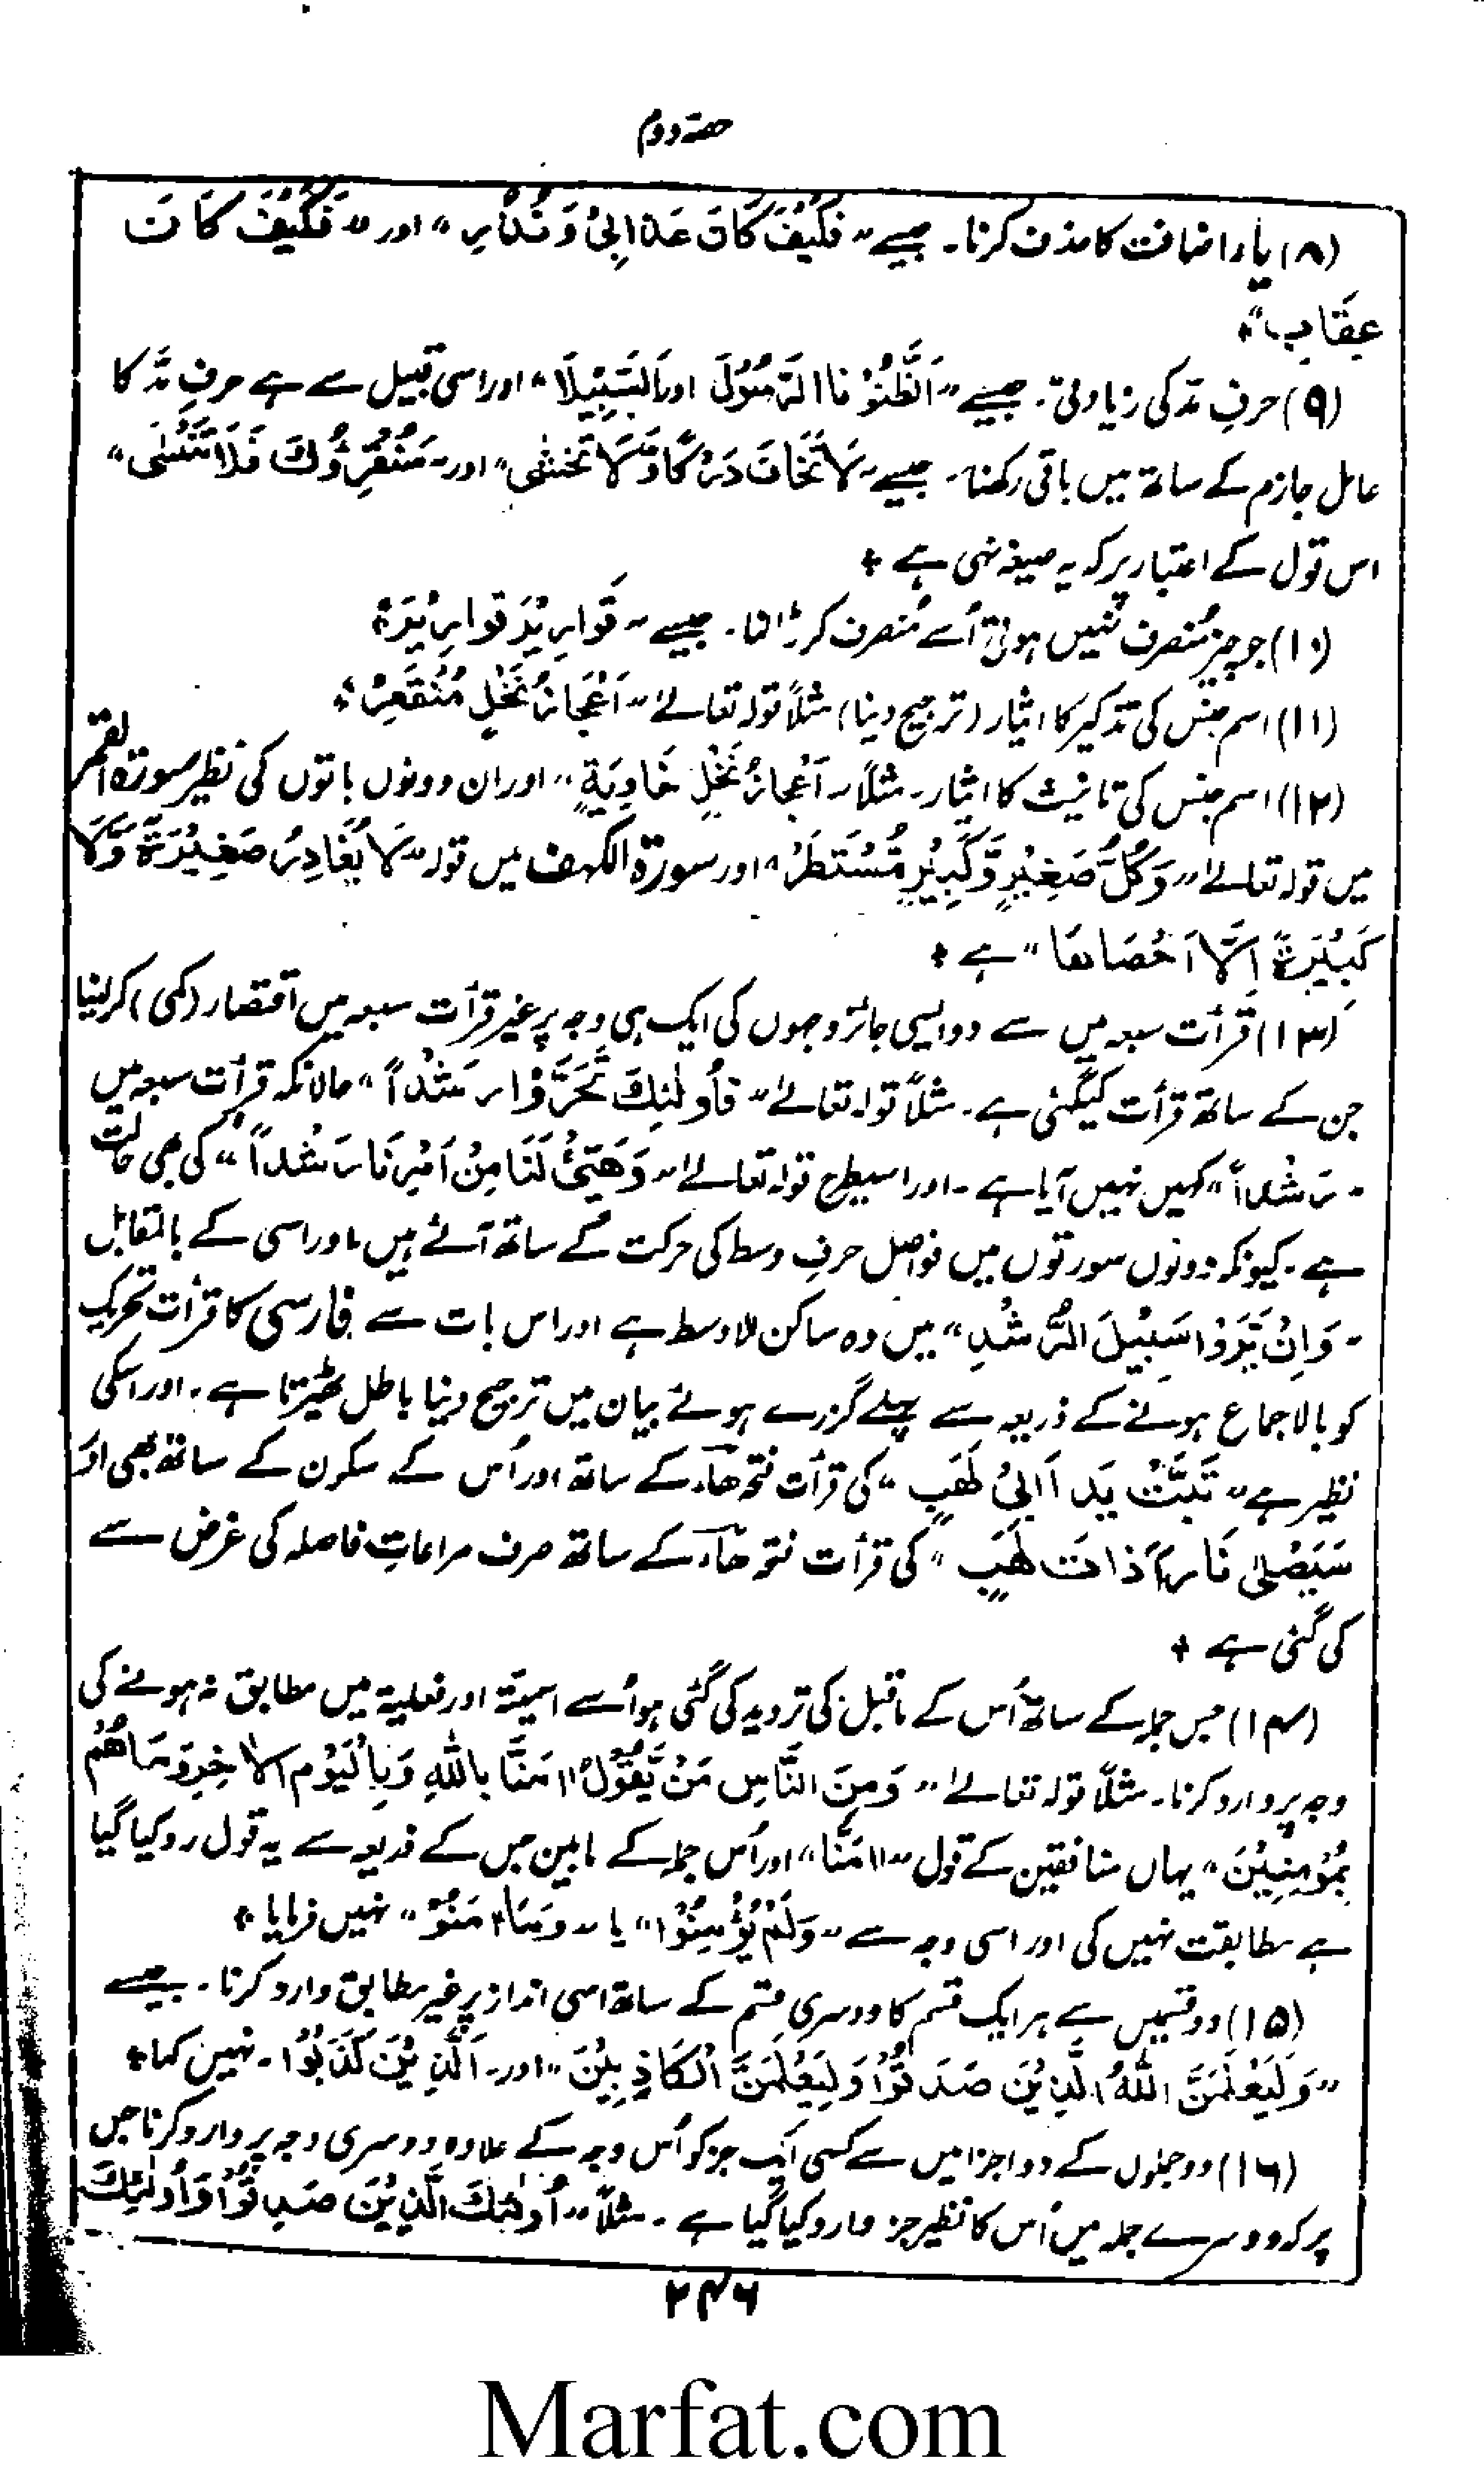 حصہ دوم
(۸) یاء اضافت کا حذف کرنا۔ جیسے "فَكَيْفَ كَانَ عَذَابِيْ وَنُذُرِ" اور "فَكَيْفَ كَانَ
عِقَابِ" +
(۹) حرفِ مَدّ کی زیادتی۔ جیسے "اَلظُّنُوْنَا الرَّسُوْلَا اور اَلسَّبِيْلَا" اور اسی قبیل سے ہے حرفِ مَدّ کا
عامل جازم کے ساتھ میں باقی رکھنا۔ جیسے "لَا تَخَافُ دَرَكًا وَّلَا تَخْشٰى" اور "سَنُقْرِئُكَ فَلَا تَنْسٰى"
اس قول کے اعتبار پر کہ یہ صیغہ نہی ہے +
(۱۰) جو چیز مُنصرف نہیں ہوتی اُسے مُنصرف کر ڈالنا۔ جیسے "قَوَارِيْرَ قَوَارِيْرَ" +
(۱۱) اسم جنس کی تذکیر کا ایثار (ترجیح دینا) مثلاً قولہ تعالےٰ "اَعْجَازُ نَخْلٍ مُنْقَعِرٍ" +
(۱۲) اسم جنس کی تانیث کا ایثار۔ مثلاً "اَعْجَازُ نَخْلٍ خَاوِيَةٍ" اور ان دونوں باتوں کی نظیر سورۃ القمر
میں قولہ تعالےٰ "وَكُلُّ صَغِيْرٍ وَّكَبِيْرٍ مُّسْتَطَرٌ" اور سورۃ الکہف میں قولہ "لَا يُغَادِرُ صَغِيْرَةً وَّلَا
كَبِيْرَةً اِلَّا اَحْصَاهَا" ہے +
(۱۳) قرأت سبعہ میں سے دو ایسی جائز وجہوں کی ایک ہی وجہ پر غیر قرأت سبعہ میں اقتصار (کمی) کر لینا
جن کے ساتھ قرأت کیگئی ہے۔ مثلاً قولہ تعالےٰ "فَأُولٰئِكَ تَحَرَّوْا رَشَدًا" حالانکہ قرأت سبعہ میں
"رُشْدًا" کہیں نہیں آیا ہے۔ اور اسیطرح قولہ تعالےٰ "وَهَيِّئْ لَنَا مِنْ اَمْرِنَا رَشَدًا" کی بھی حالت
ہے۔ کیونکہ دونوں سورتوں میں فواصل حرفِ وسط کی حرکت کے ساتھ آئے ہیں۔ اور اسی کے بالمقابل
"وَاِنْ يَّرَوْا سَبِيْلَ الرُّشْدِ" میں وہ ساکن الاوسط ہے اور اس بات سے فارسی کا قرأت تحریک
کو بالاجماع ہونے کے ذریعہ سے پہلے گزرے ہوئے بیان میں ترجیح دینا باطل ٹھیرتا ہے۔ اور اسکی
نظیر ہے "تَبَّتْ يَدَا اَبِيْ لَهَبٍ" کی قرأت فتحہ ھاء کے ساتھ اور اُس کے سکون کے ساتھ بھی اور
سَيَصْلٰى نَارًا ذَاتَ لَهَبٍ" کی قرأت فتحہ ھاء کے ساتھ صرف مراعاتِ فاصلہ کی غرض سے
کی گئی ہے +
(۱۴) جس جملہ کے ساتھ اُس کے ماقبل کی تردید کی گئی ہو اُسے اسمیۃ اور فعلیۃ میں مطابق نہ ہونے کی
وجہ پر وارد کرنا۔ مثلاً قولہ تعالےٰ "وَمِنَ النَّاسِ مَنْ يَّقُوْلُ اٰمَنَّا بِاللّٰهِ وَبِالْيَوْمِ الْاٰخِرِ وَمَا هُمْ
بِمُؤْمِنِيْنَ" یہاں منافقین کے قول "اٰمَنَّا" اور اُس جملہ کے مابین جس کے ذریعہ سے یہ قول رد کیا گیا
ہے مطابقت نہیں کی اور اسی وجہ سے "وَلَمْ يُؤْمِنُوْا" یا "وَمَا اٰمَنُوْ" نہیں فرمایا +
(۱۵) دو قسمیں سے ہر ایک قسم کا دوسری قسم کے ساتھ اسی انداز پر غیر مطابق وارد کرنا۔ جیسے
"وَلَيَعْلَمَنَّ اللّٰهُ الَّذِيْنَ صَدَقُوْا وَلَيَعْلَمَنَّ الْكَاذِبِيْنَ" اور۔ اَلَّذِيْنَ كَذَبُوْا۔ نہیں کہا +
(۱۶) دو جملوں کے دو اجزا میں سے کسی ایک جز کو اُس وجہ کے علاوہ دوسری وجہ پر وارد کرنا جس
پر کہ دوسرے جملہ میں اُس کا نظیر جز وارد کیا گیا ہے۔ مثلاً "اُولٰئِكَ الَّذِيْنَ صَدَقُوْا وَاُولٰئِكَ
۲۴۶
Marfat.com